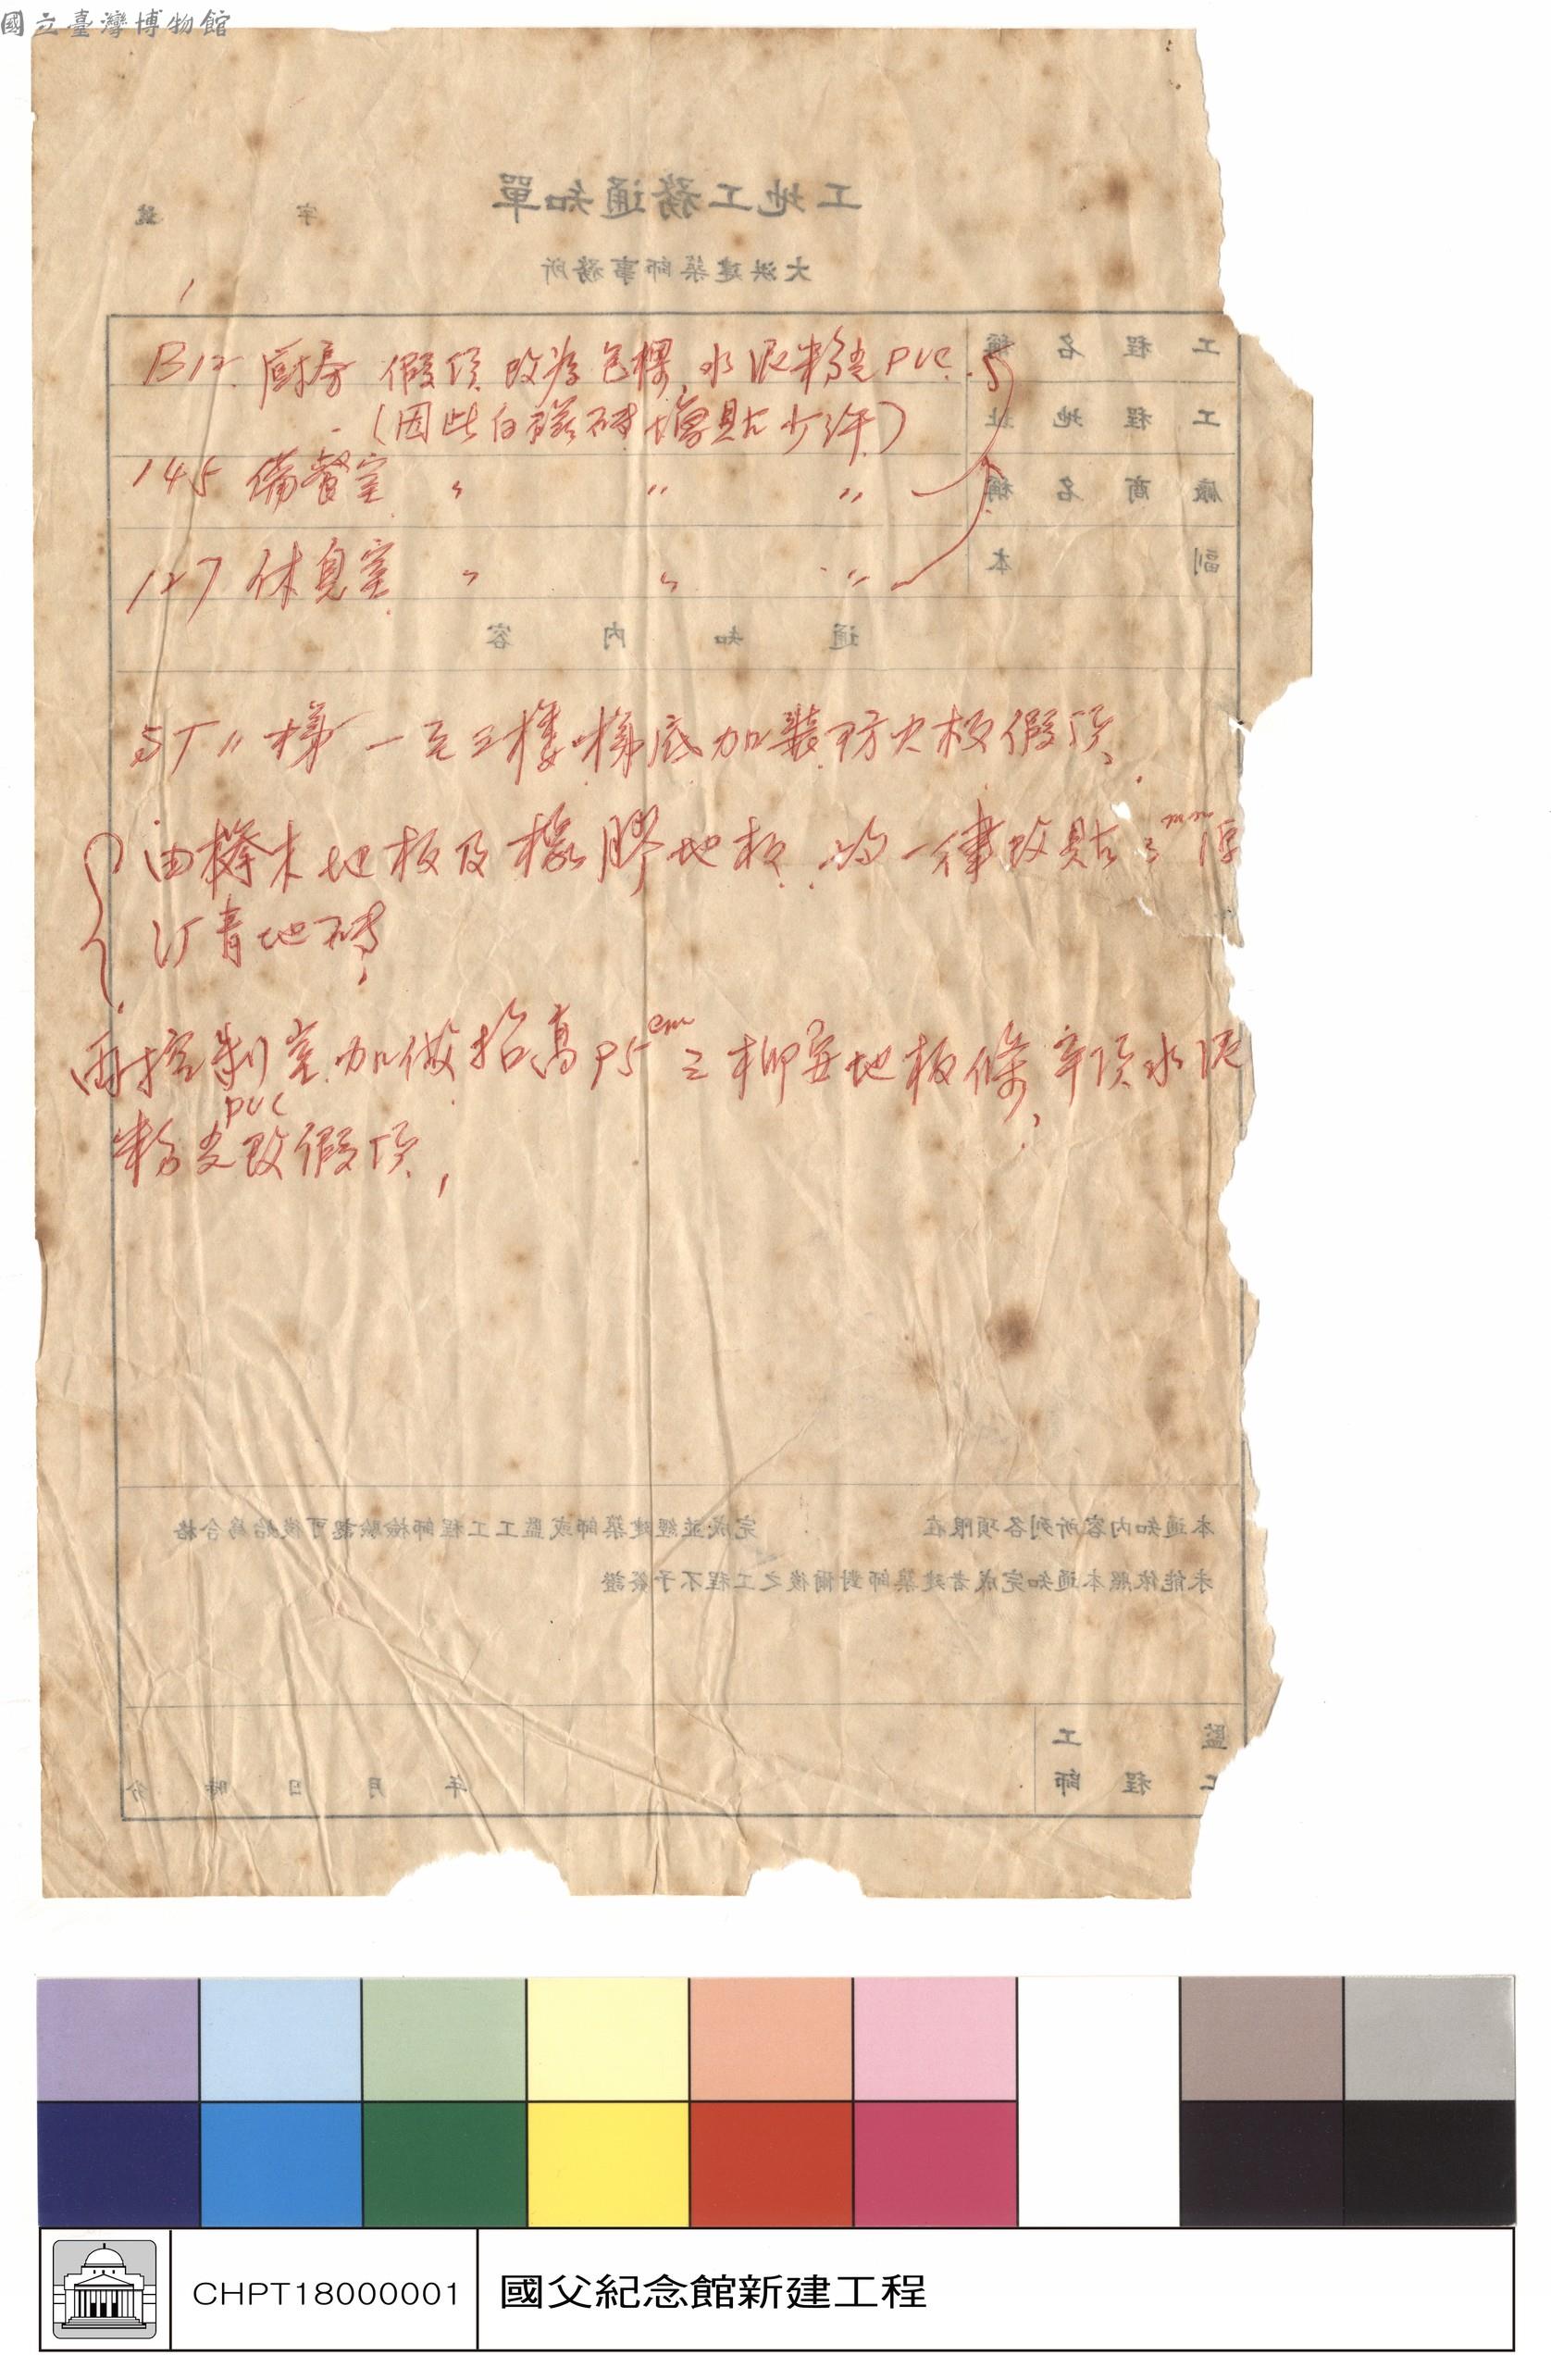 國立臺灣博物館
工地工務通知單
字 號
大洪建築師事務所
工程名稱
工程地址
廠商名稱
副本
通知內容
B12 廚房 假頂改為包樑,水泥粉光PVC.
(因此白磁磚增貼少許)
145 備餐室 〃 〃 〃
127 休息室 〃 〃 〃
ST11梯 一至三樓梯底加裝防火板假頂,
由櫸木地板及橡膠地板 的一律改貼3mm厚
汀青地磚,
兩控制室.加做抬高95cm之柳安地板條,平頂水泥
粉光PVC改假頂,
本通知內容所列各項限在 完成並經建築師或監工工程師檢驗認可後始為合格
未能依照本通知完成者建築師對爾後之工程不予簽證
監工
工程師
年 月 日 時 分
CHPT18000001
國父紀念館新建工程